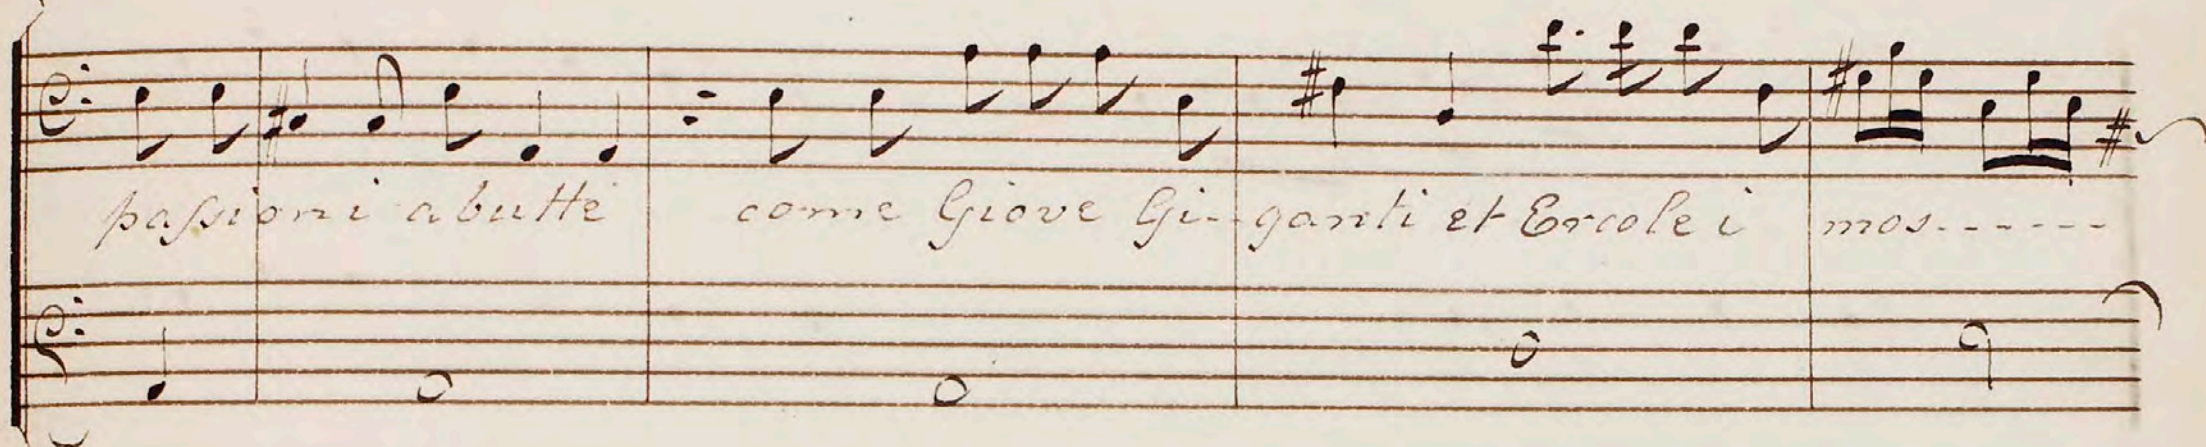 passioni abutte come Giove Gi-ganti et Ercole i mos------